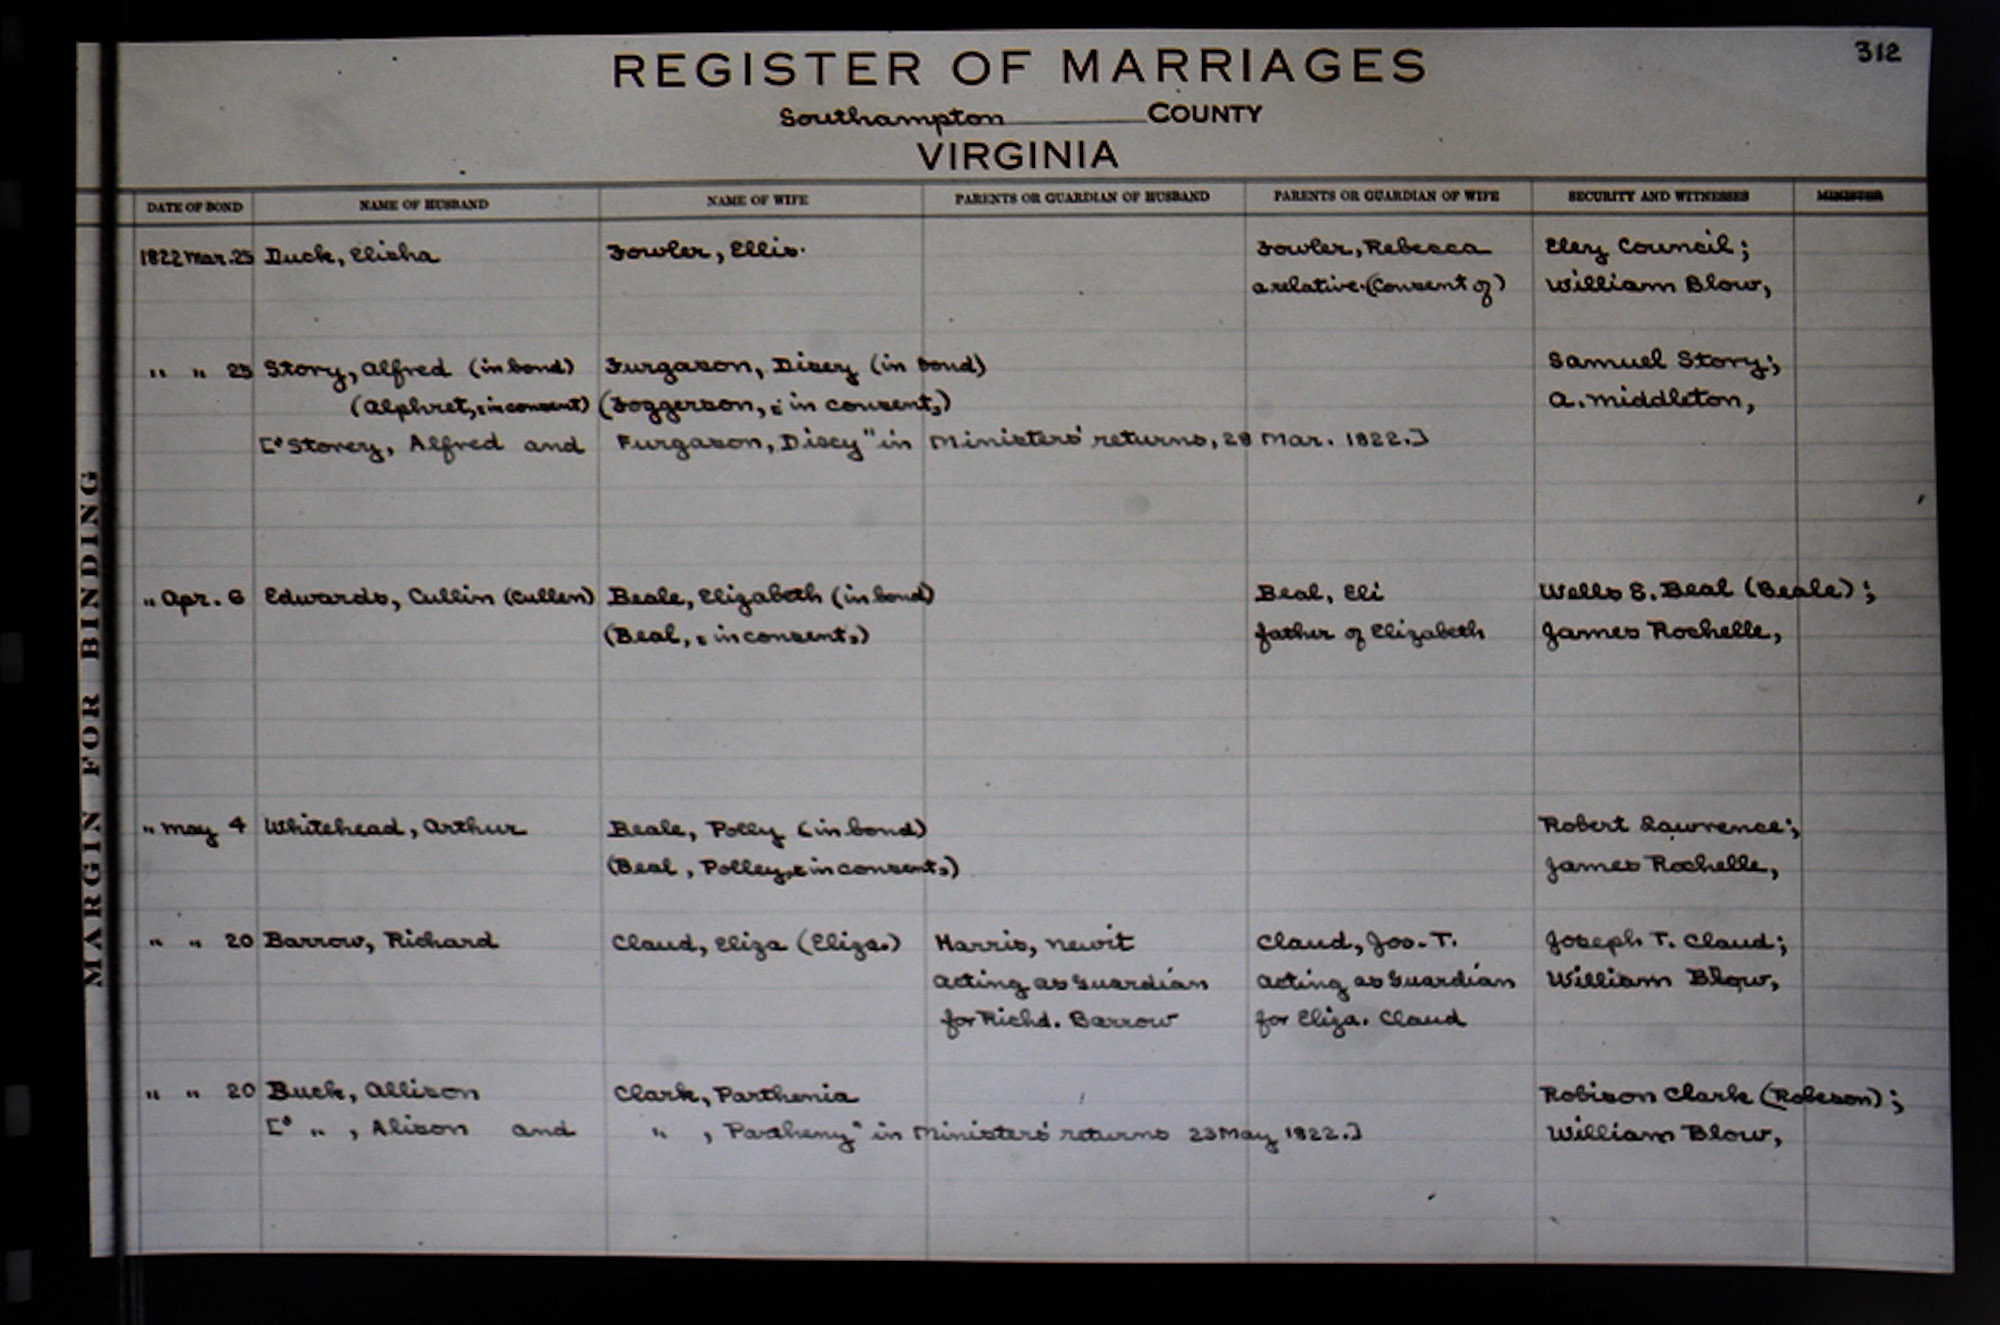 312
REGISTER OF MARRIAGES
Southampton COUNTY
VIRGINIA
DATE OF BOND NAME OF HUSBAND NAME OF WIFE PARENTS OR GUARDIAN OF HUSBAND PARENTS OR GUARDIAN OF WIFE SECURITY AND WITNESSES MINISTER
1822 Mar. 25 Duck, Elisha Fowler, Ellis. Fowler, Rebecca Eley Council;
a relative. (Consent of) William Blow,
" " 25 Story, Alfred (in bond) Furgason, Dicey (in bond) Samuel Story;
(Alphret, : in consent) (Foggerson, : in consent,) A. Middleton,
["Storey, Alfred and Furgason, Disey" in Ministers' returns, 28 Mar. 1822.]
" Apr. 6 Edwards, Cullin (Cullen) Beale, Elizabeth (in bond) Beal, Eli Wells S. Beal (Beale);
(Beal, : in consent,) father of Elizabeth James Rochelle,
" May 4 Whitehead, Arthur Beale, Polly (in bond) Robert Lawrence;
(Beal, Polley, : in consent,) James Rochelle,
" " 20 Barrow, Richard Claud, Eliza (Eliza.) Harris, Newit Claud, Jos. T. Joseph T. Claud;
acting as Guardian acting as Guardian William Blow,
for Richd. Barrow for Eliza. Claud
" " 20 Buck, Allison Clark, Parthenia Robison Clark (Robeson);
[" " , Alison and " , Partheny" in Ministers' returns 23 May 1822.] William Blow,
MARGIN FOR BINDING